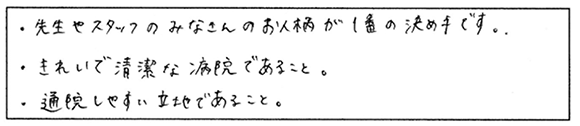 ・先生やスタッフのみなさんのお人柄が1番の決め手です。
・きれいで清潔な病院であること。
・通院しやすい立地であること。